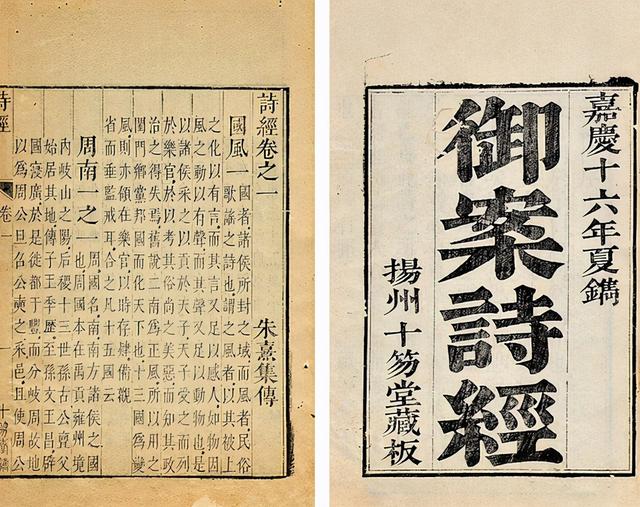 嘉慶十六年夏鐫
御案詩經
揚州十笏堂藏板
詩經卷之一 朱熹集傳
國風一
國者諸侯所封之域而風者民俗
歌謠之詩也謂之風者以其被上
之化以有言而其言又足以感人如物因
風之動以有聲而其聲又足以動物也是
以諸侯采之以貢於天子天子受之而列
於樂官於以考其俗尚之美惡而知其政
治之得失焉舊說二南為正風所以用之
閨門鄉黨邦國而化天下也十三國為變
風則亦領在樂官以時存肄備觀
省而垂監戒耳合之凡十五國云
周南一之一
周國名南南方諸侯之國
也周國本在禹貢雍州境
內岐山之陽后稷十三世孫古公亶父
始居其地傳子王季歷至孫文王昌辟
國寖廣於是徙都于豐而分岐周故地
以為周公旦召公奭之采邑且使周公
詩經
卷一
一